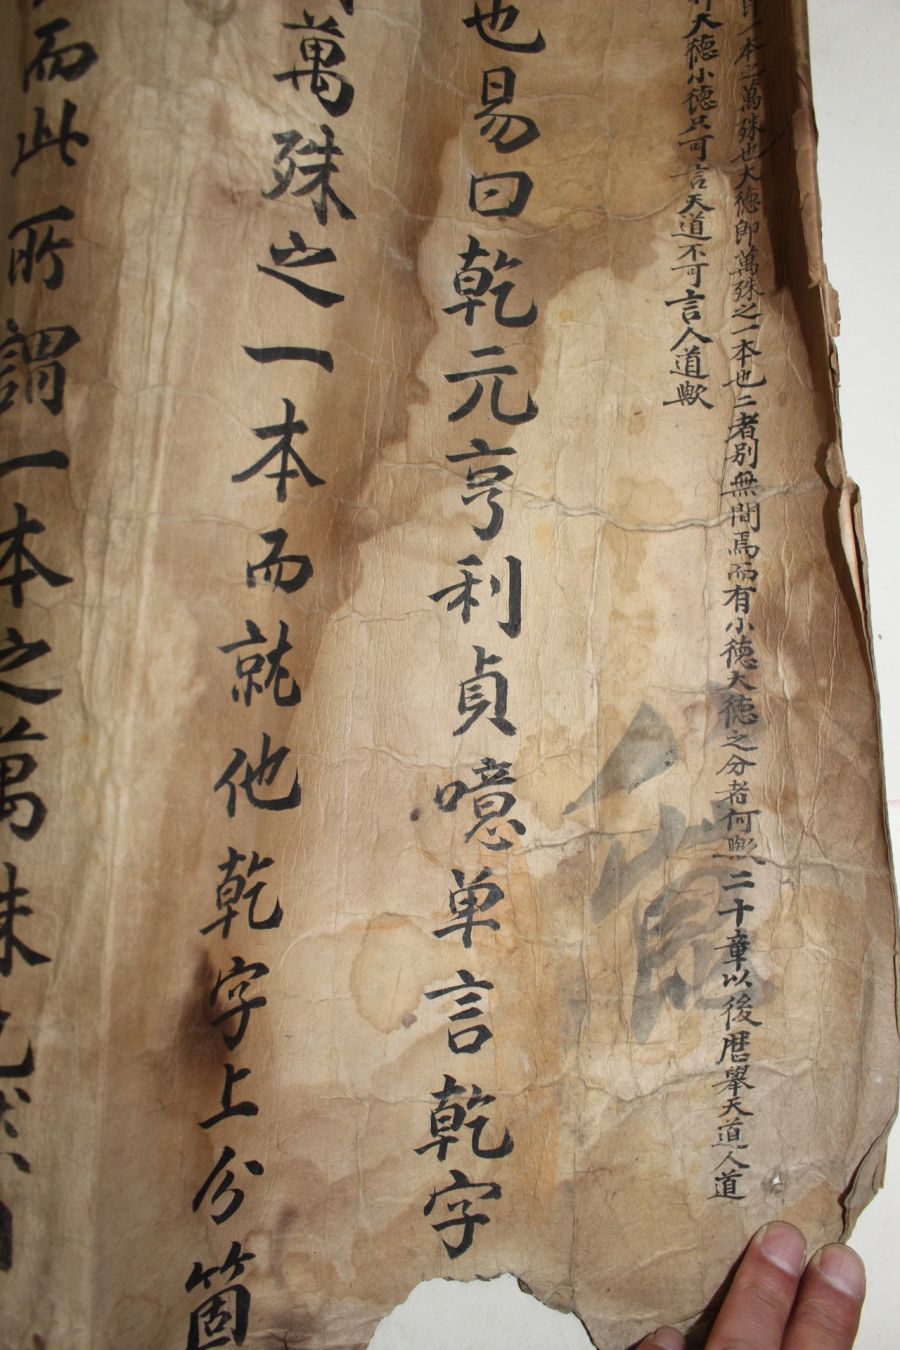 即一本之萬殊也大德即萬殊之一本也二者別無間焉而有小德大德之分者何歟二十章以後歷舉天道人道
大德小德只可言天道不可言人道歟
也易曰乾元亨利貞噫单言乾字
萬殊之一本而就他乾字上分箇
而此所謂一本之萬殊也